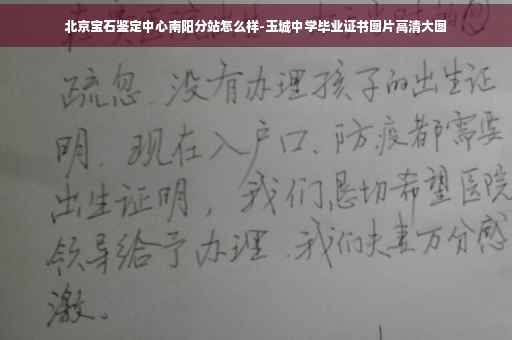 北京宝石鉴定中心南阳分站怎么样-玉城中学毕业证书图片高清大图
疏忽、没有办理孩子的出生证
明、现在入户口、防疫都需要
出生证明，我们恳切希望医院
领导给予办理、我们夫妻万分感
激。